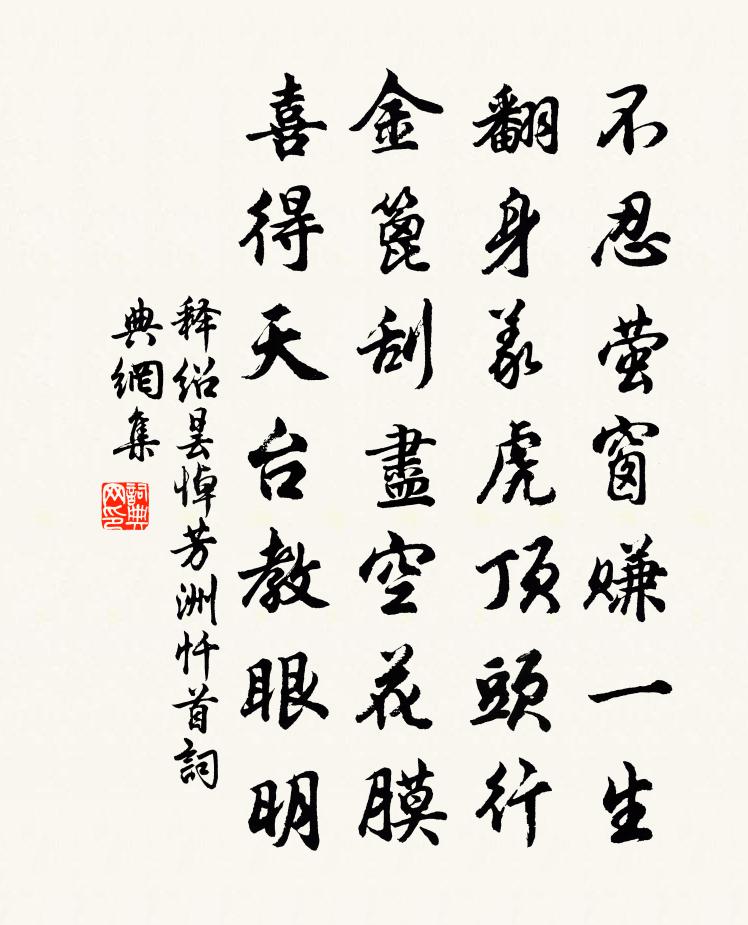 不忍萤窗赚一生
翻身羕虎頂頭行
金篦刮盡空花膜
喜得天台教眼明
释绍昙悼芳洲忏首詞
典網集
詞典网印